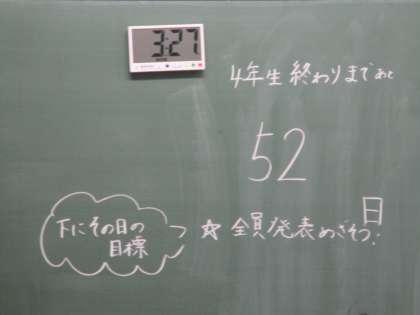 3:27
4年生 終わりまで あと
52
日
下にその日の
目標
☆ 全員発表めざそう!